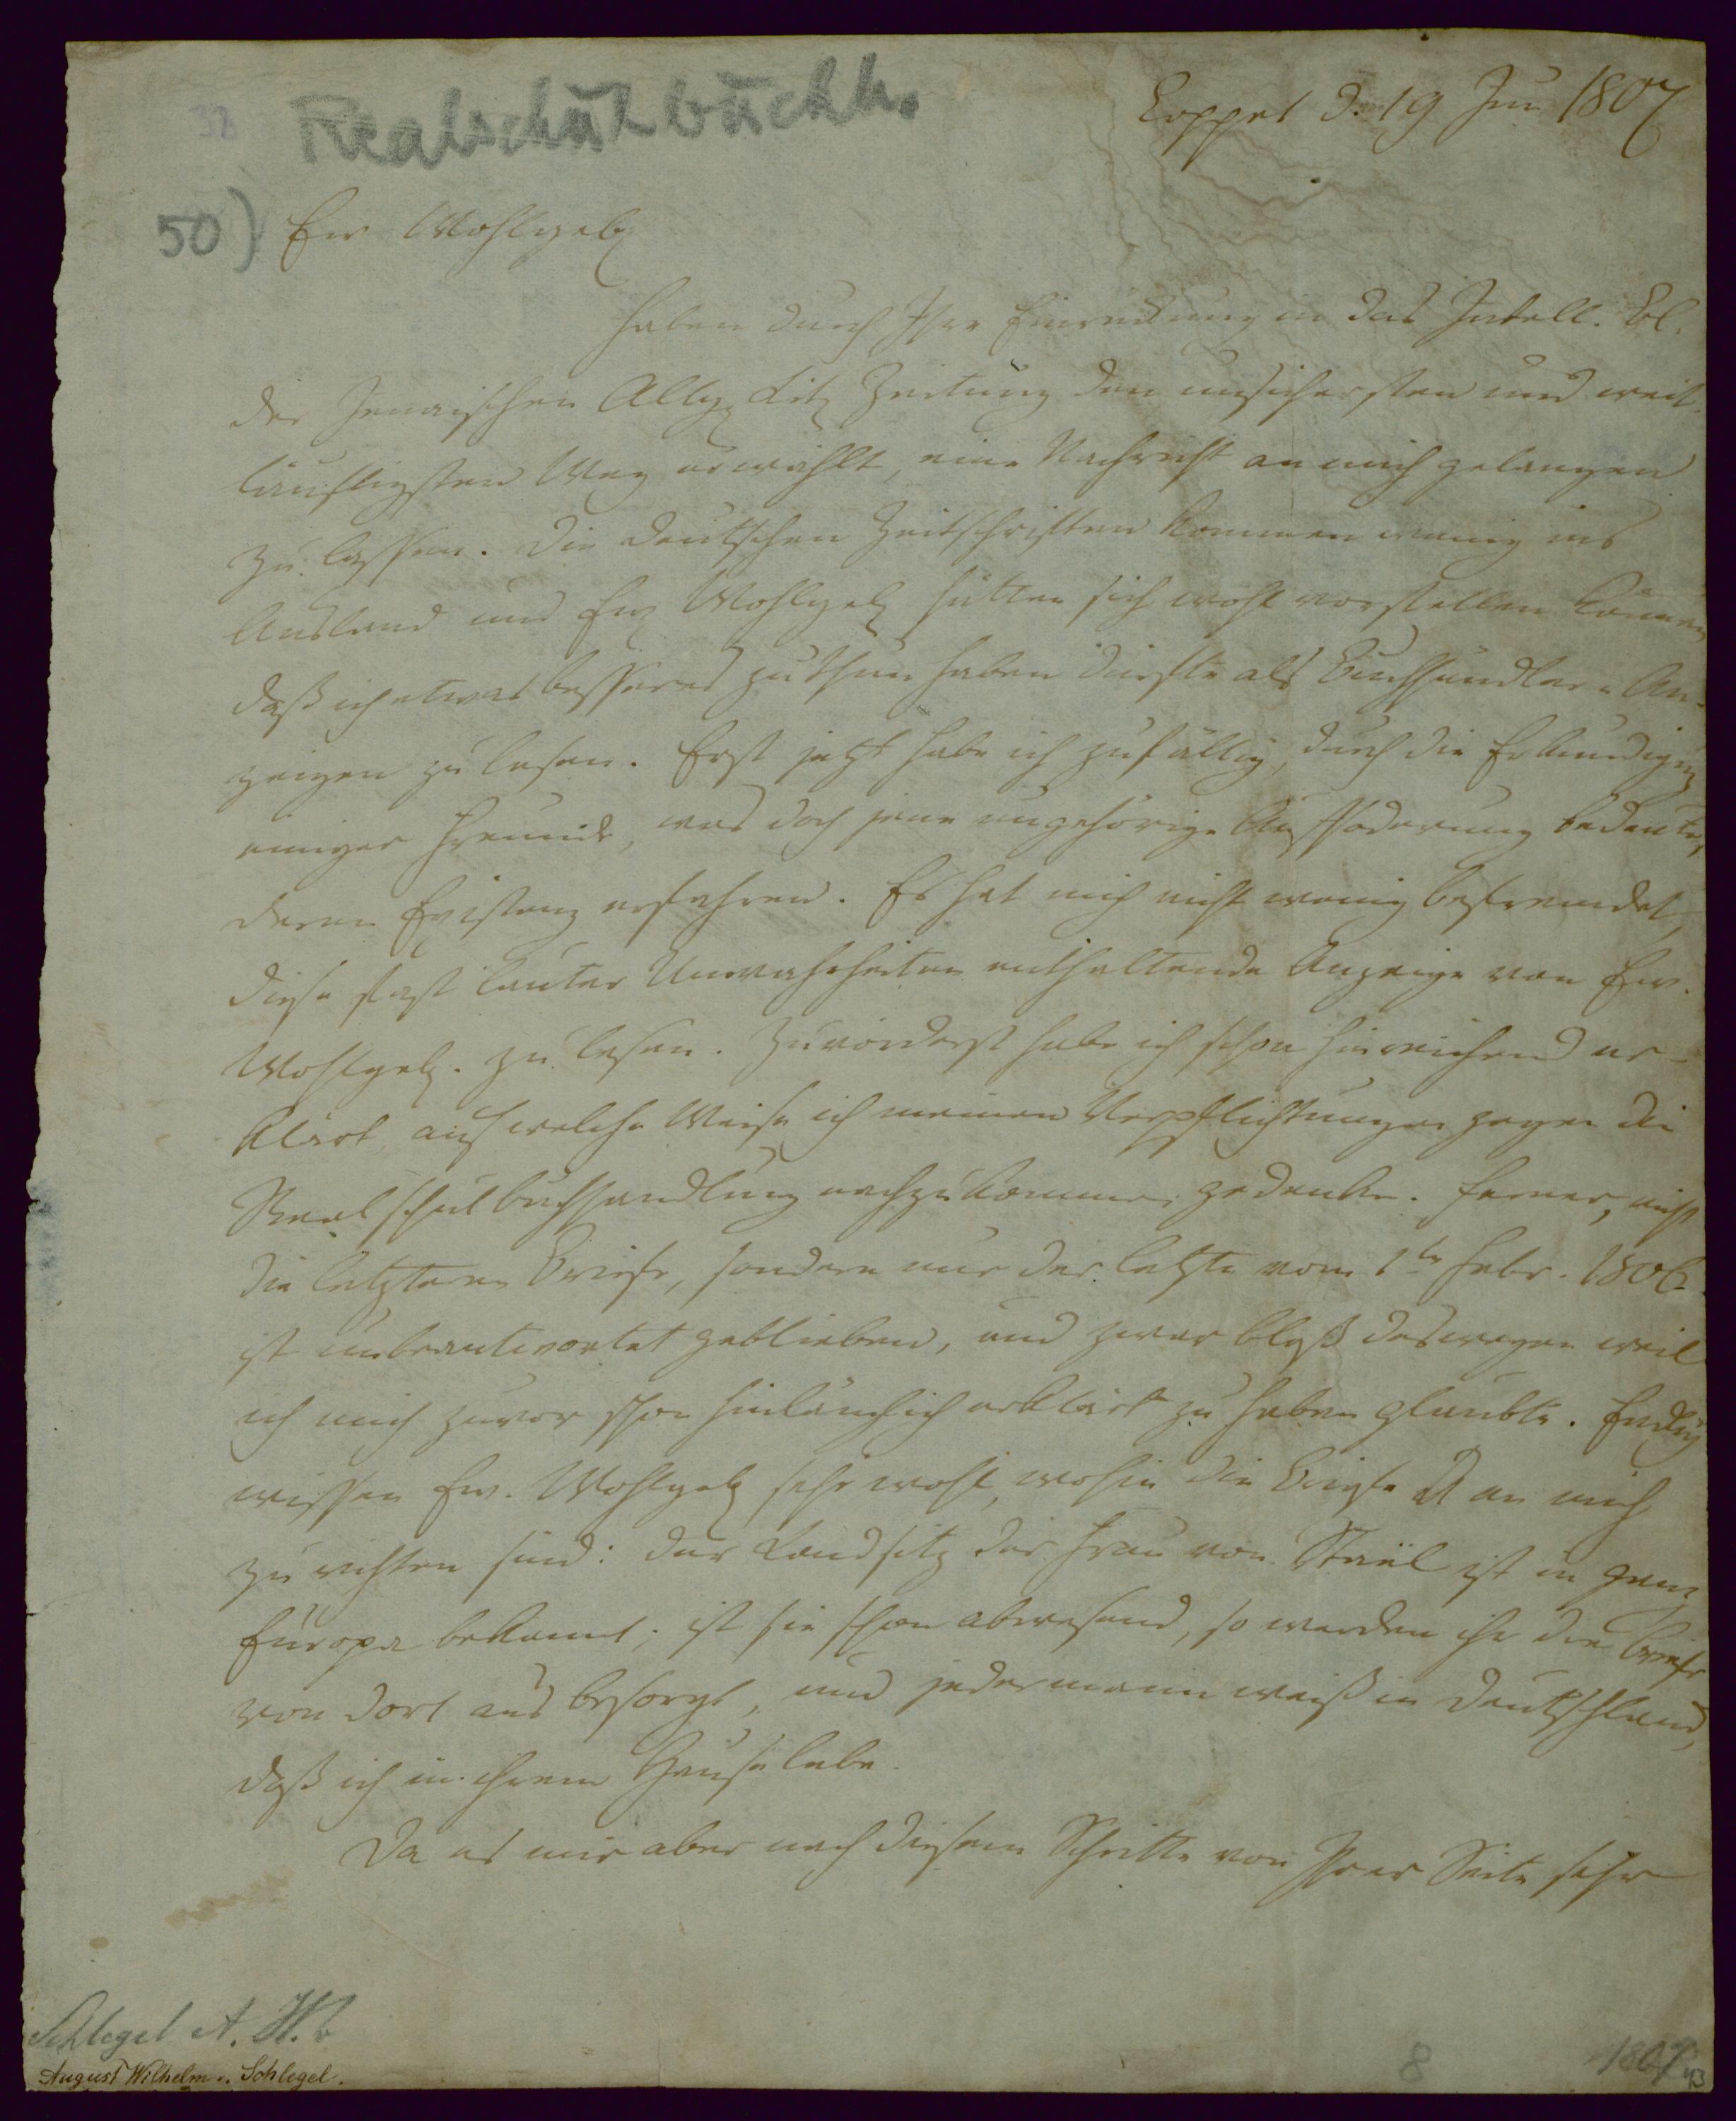 32
Realschulbuchh.
Coppet d. 19 Jun 1807
50)
Ew Wohlgeb
haben durch Ihre Einrückung in das Intell. Bl.
der Jenaischen Allg Litz Zeitung den unsichersten und weit-
läuftigsten Weg erwählt, eine Nachricht an mich gelangen
zu lassen. Die deutschen Zeitschriften kommen wenig ins
Ausland und Ew Wohlgeb hätten sich wohl vorstellen können
daß ich etwas besseres zu thun haben dürfte als Buchhändler-An-
zeigen zu lesen. Erst jetzt habe ich zufällig, durch die Erkundigung
einiger Freunde, was doch jene ungehörige Aufforderung bedeute,
deren Existenz erfahren. Es hat mich nicht wenig befremdet,
diese fast lauter Unwahrheiten enthaltende Anzeige von Ew.
Wohlgeb. zu lesen. Zuvörderst habe ich schon hinreichend er-
klärt, auf welche Weise ich meinen Verpflichtungen gegen die
Realschulbuchhandlung nachzukommen gedenke. Ferner, nicht
die letzteren Briefe, sondern nur der letzte vom 1ten Febr. 1806
ist unbeantwortet geblieben, und zwar bloß deswegen weil
ich mich zuvor schon hinlänglich erklärt zu haben glaubte. Endlich
wissen Ew. Wohlgeb sehr wohl, wohin die Briefe an mich
zu richten sind: der Landsitz der Frau von Staël ist in ganz
Europa bekannt; ist sie schon abwesend, so werden ihr die Briefe
von dort aus besorgt, und jedermann weiß in Deutschland,
daß ich in ihrem Hause lebe.
Da es mir aber nach diesem Schritte von Ihrer Seite sehr
Schlegel A. W. v
August Wilhelm v. Schlegel.
8
1807